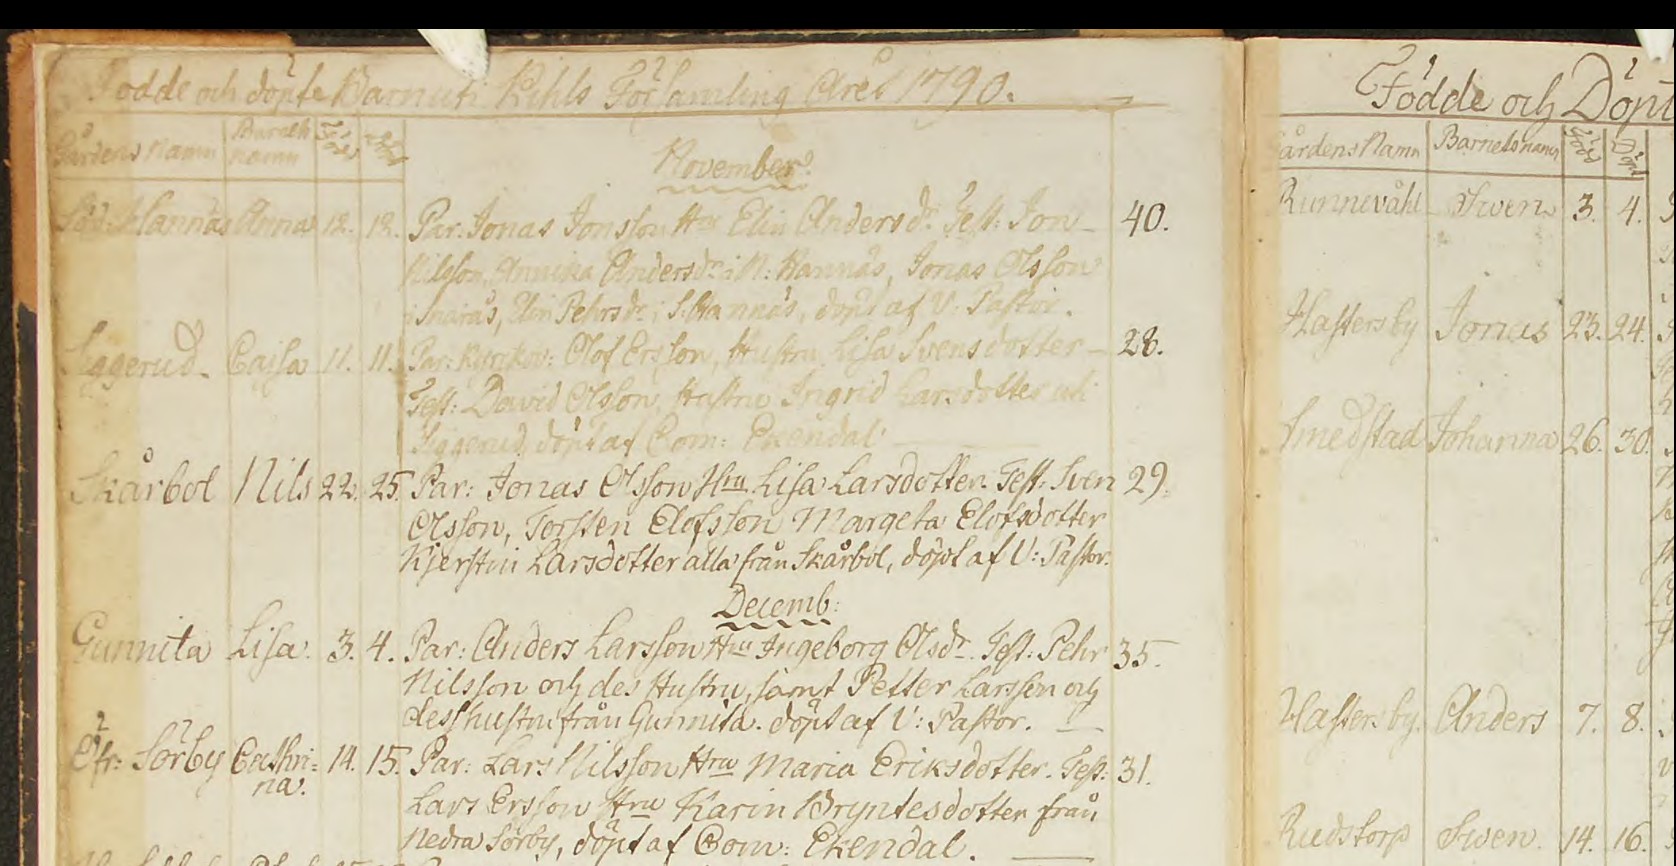 Födde och döpte Barn uti Kihls Församling Året 1790.
Gårdens Namn Barneth namn Född Döpt
November:
Söd: Hannäs Anna 12. 12. Par: Jonas Jonsson Hru Elin Andersdr. Test: Jon 40.
Nilsson, Annika Andersdr. i N: Hannäs, Jonas Olsson
i Snarås, Elin Pehrsdr. i S. Hannäs, döpt af V: Pastor.
Siggerud Cajsa 11. 11. Par: Olof Ersson, Hustru Lisa Svensdotter 28.
Test: David Olsson, Hustru Ingrid Larsdotter uti
Siggerud, döpt af Com: Ekendal.
Skårbol Nils 22. 25. Par: Jonas Olsson Hru Lisa Larsdotter. Test: Sven 29.
Olsson, Torsten Elofsson Margeta Elofsdotter
Kjerstin Larsdotter alla från Skårbol, döpt af V: Pastor.
Decemb:
Gunnita Lisa. 3. 4. Par: Anders Larsson Hru Ingeborg Olsdr. Test: Pehr 35.
Nilsson och des Hustru, samt Petter Larsson och
dess hustru från Gunnita. döpt af V: Pastor.
Öfr: Sörby Cathri= 14. 15. Par: Lars Nilsson Hru Maria Eriksdotter. Test: 31.
na.
Lars Ersson Hru Karin Bryntesdotter från
Nedra Sörby, döpt af Com: Ekendal.
Födde och Döpt
Gårdens Namn Barnets namn Född Döpt
Runnevåhl Swen 3. 4.
Hastersby Jonas 23. 24.
Smedstad Johanna 26. 30.
Hastersby. Anders 7. 8.
Rudstorp Swen. 14. 16.